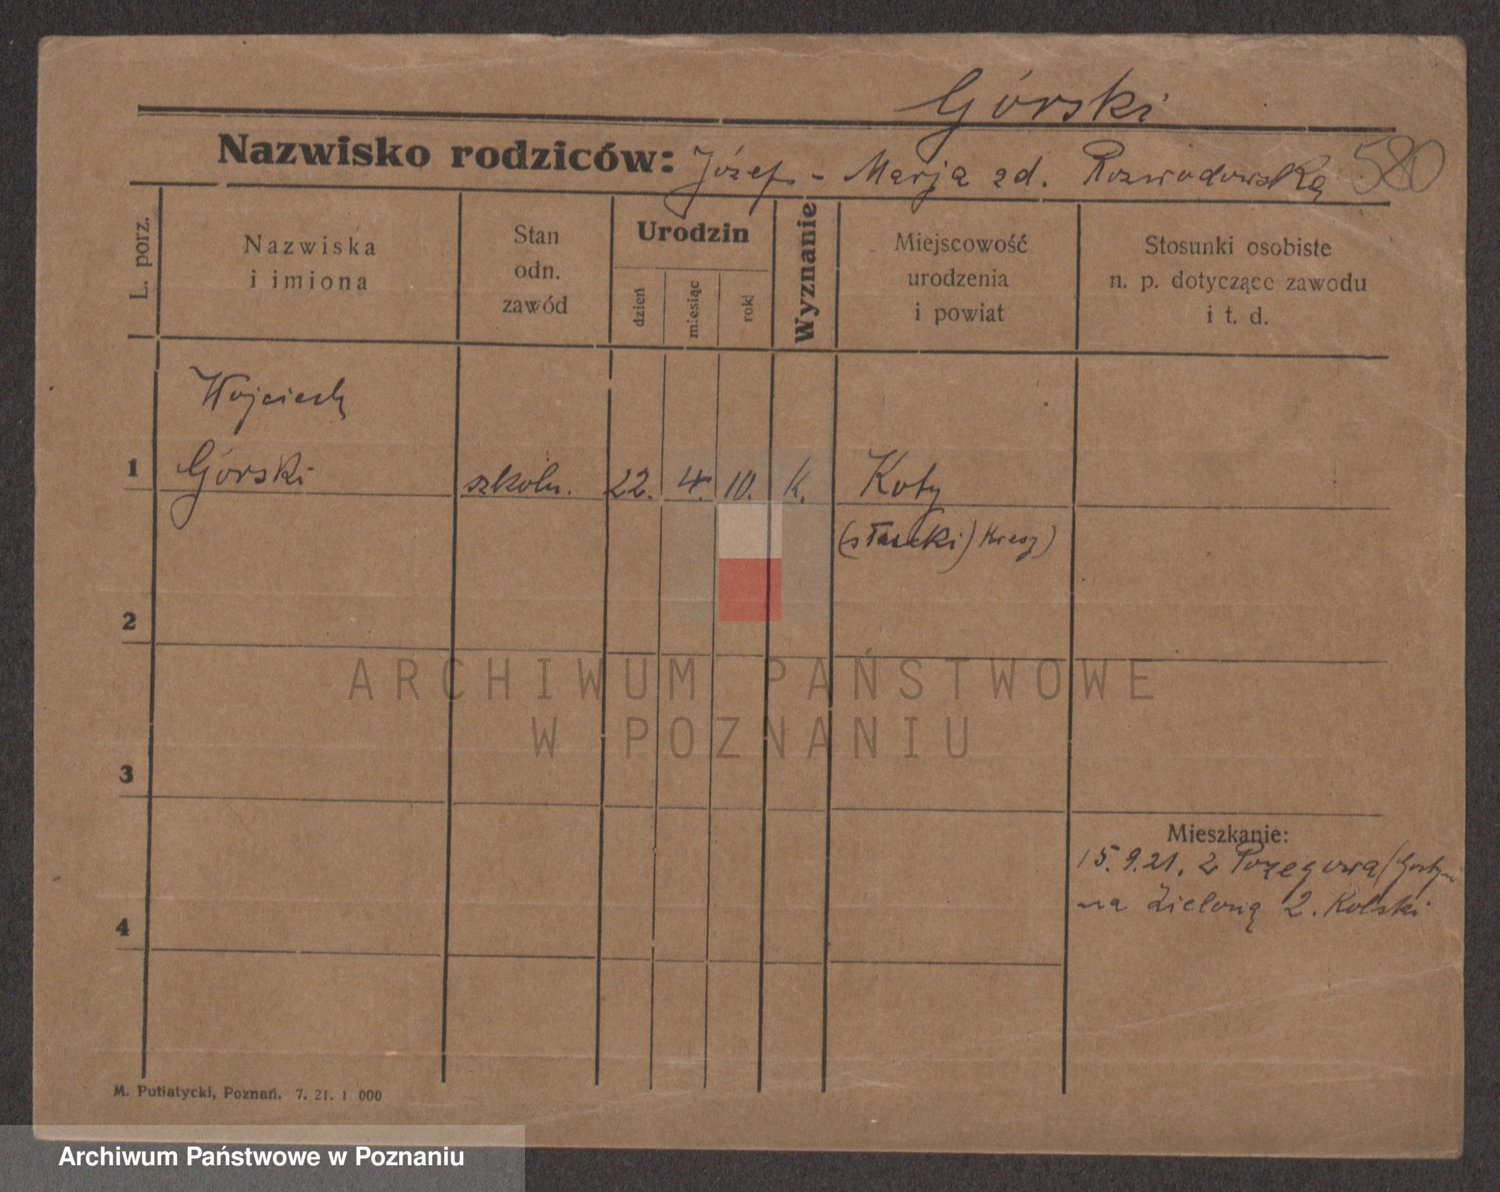 Górski
Nazwisko rodziców: Józef - Marja zd. Rozwadowska 580
L. porz.
Nazwiska
i imiona
Stan
odn.
zawód
Urodzin
dzień
miesiąc
rok
Wyznanie
Miejscowość
urodzenia
i powiat
Stosunki osobiste
n. p. dotyczące zawodu
i t. d.
Wojciech
1 Górski szkoln. 22. 4. 10. k. Koty
2
3
4
Mieszkanie:
15.9.21. z
na Zieloną 2. Kolski
M. Putiatycki, Poznań. 7. 21. 1 000
ARCHIWUM PAŃSTWOWE
W POZNANIU
Archiwum Państwowe w Poznaniu